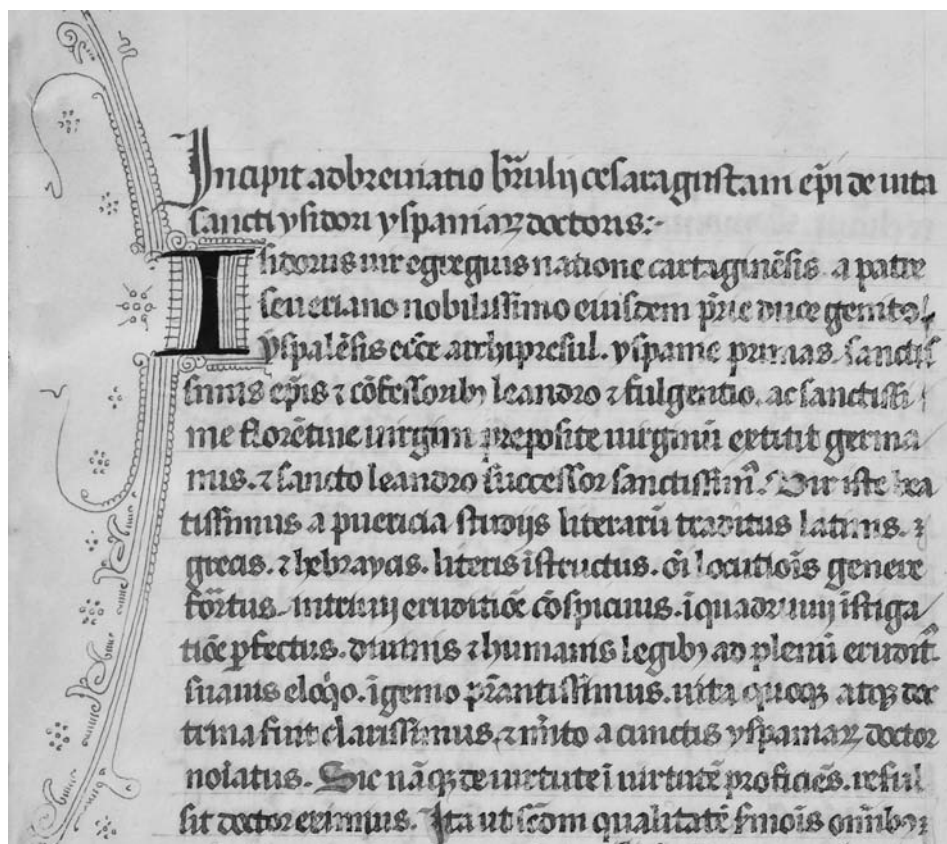 Incipit adbreuiatio br̄ulij cesaragustani ep̄i de uita
sancti ysidori yspaniaꝝ doctoris:-
Isidorus uir egregius natione cartaginēsis a patre
seueriano nobilissimo eiusdem p̄rie duce genitus
yspalēsis ecc̄e archipresul. yspanie primas. sanctis
simis ep̄is ⁊ cōfessoribꝫ leandro ⁊ fulgentio. ac sanctissi
me florētine uirgini preposite uirginū extitit germa
nus. ⁊ sancto leandro successor sanctissim̄. Vir iste bea
tissimus a puericia studijs literarū traditus latinis. ⁊
grecis. ⁊ hebraycis. literis īstructus. oī locutiōis genere
for̄tus. in triuij eruditiōe cōspicuus. ī quadriuij īstiga
tiōe ꝑfectus. diuinis ⁊ humanis legibꝫ ad plenū erudit̄
suauis eloq̄o. īgenio p̄rantissimus. uita quoqꝫ atqꝫ doc
trina fuit clarissimus. ⁊ m̄ito a cunctis yspaniaꝝ doctor
noīatus. Sic nāqꝫ de uirtute ī uirtutē proficiēs. reful
sit doctor eximius. Ita ut sc̄dm qualitatē s̄mōis omībꝫ